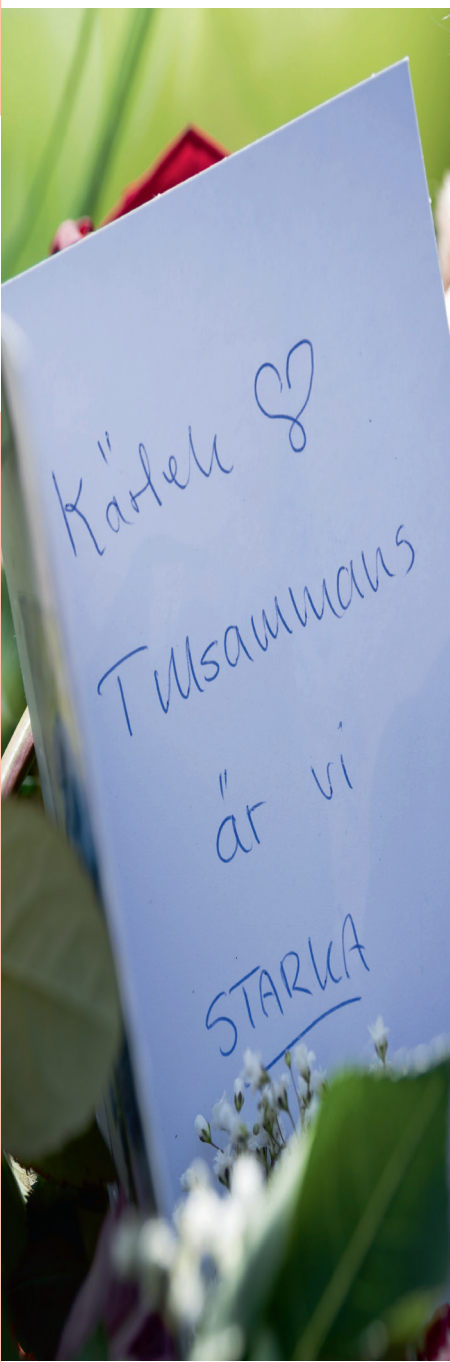 Kärlek ♡
Tillsammans
är vi
STARKA